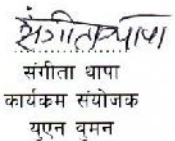 संगीता थापा
संगीता थापा
कार्यक्रम संयोजक
युएन वुमन